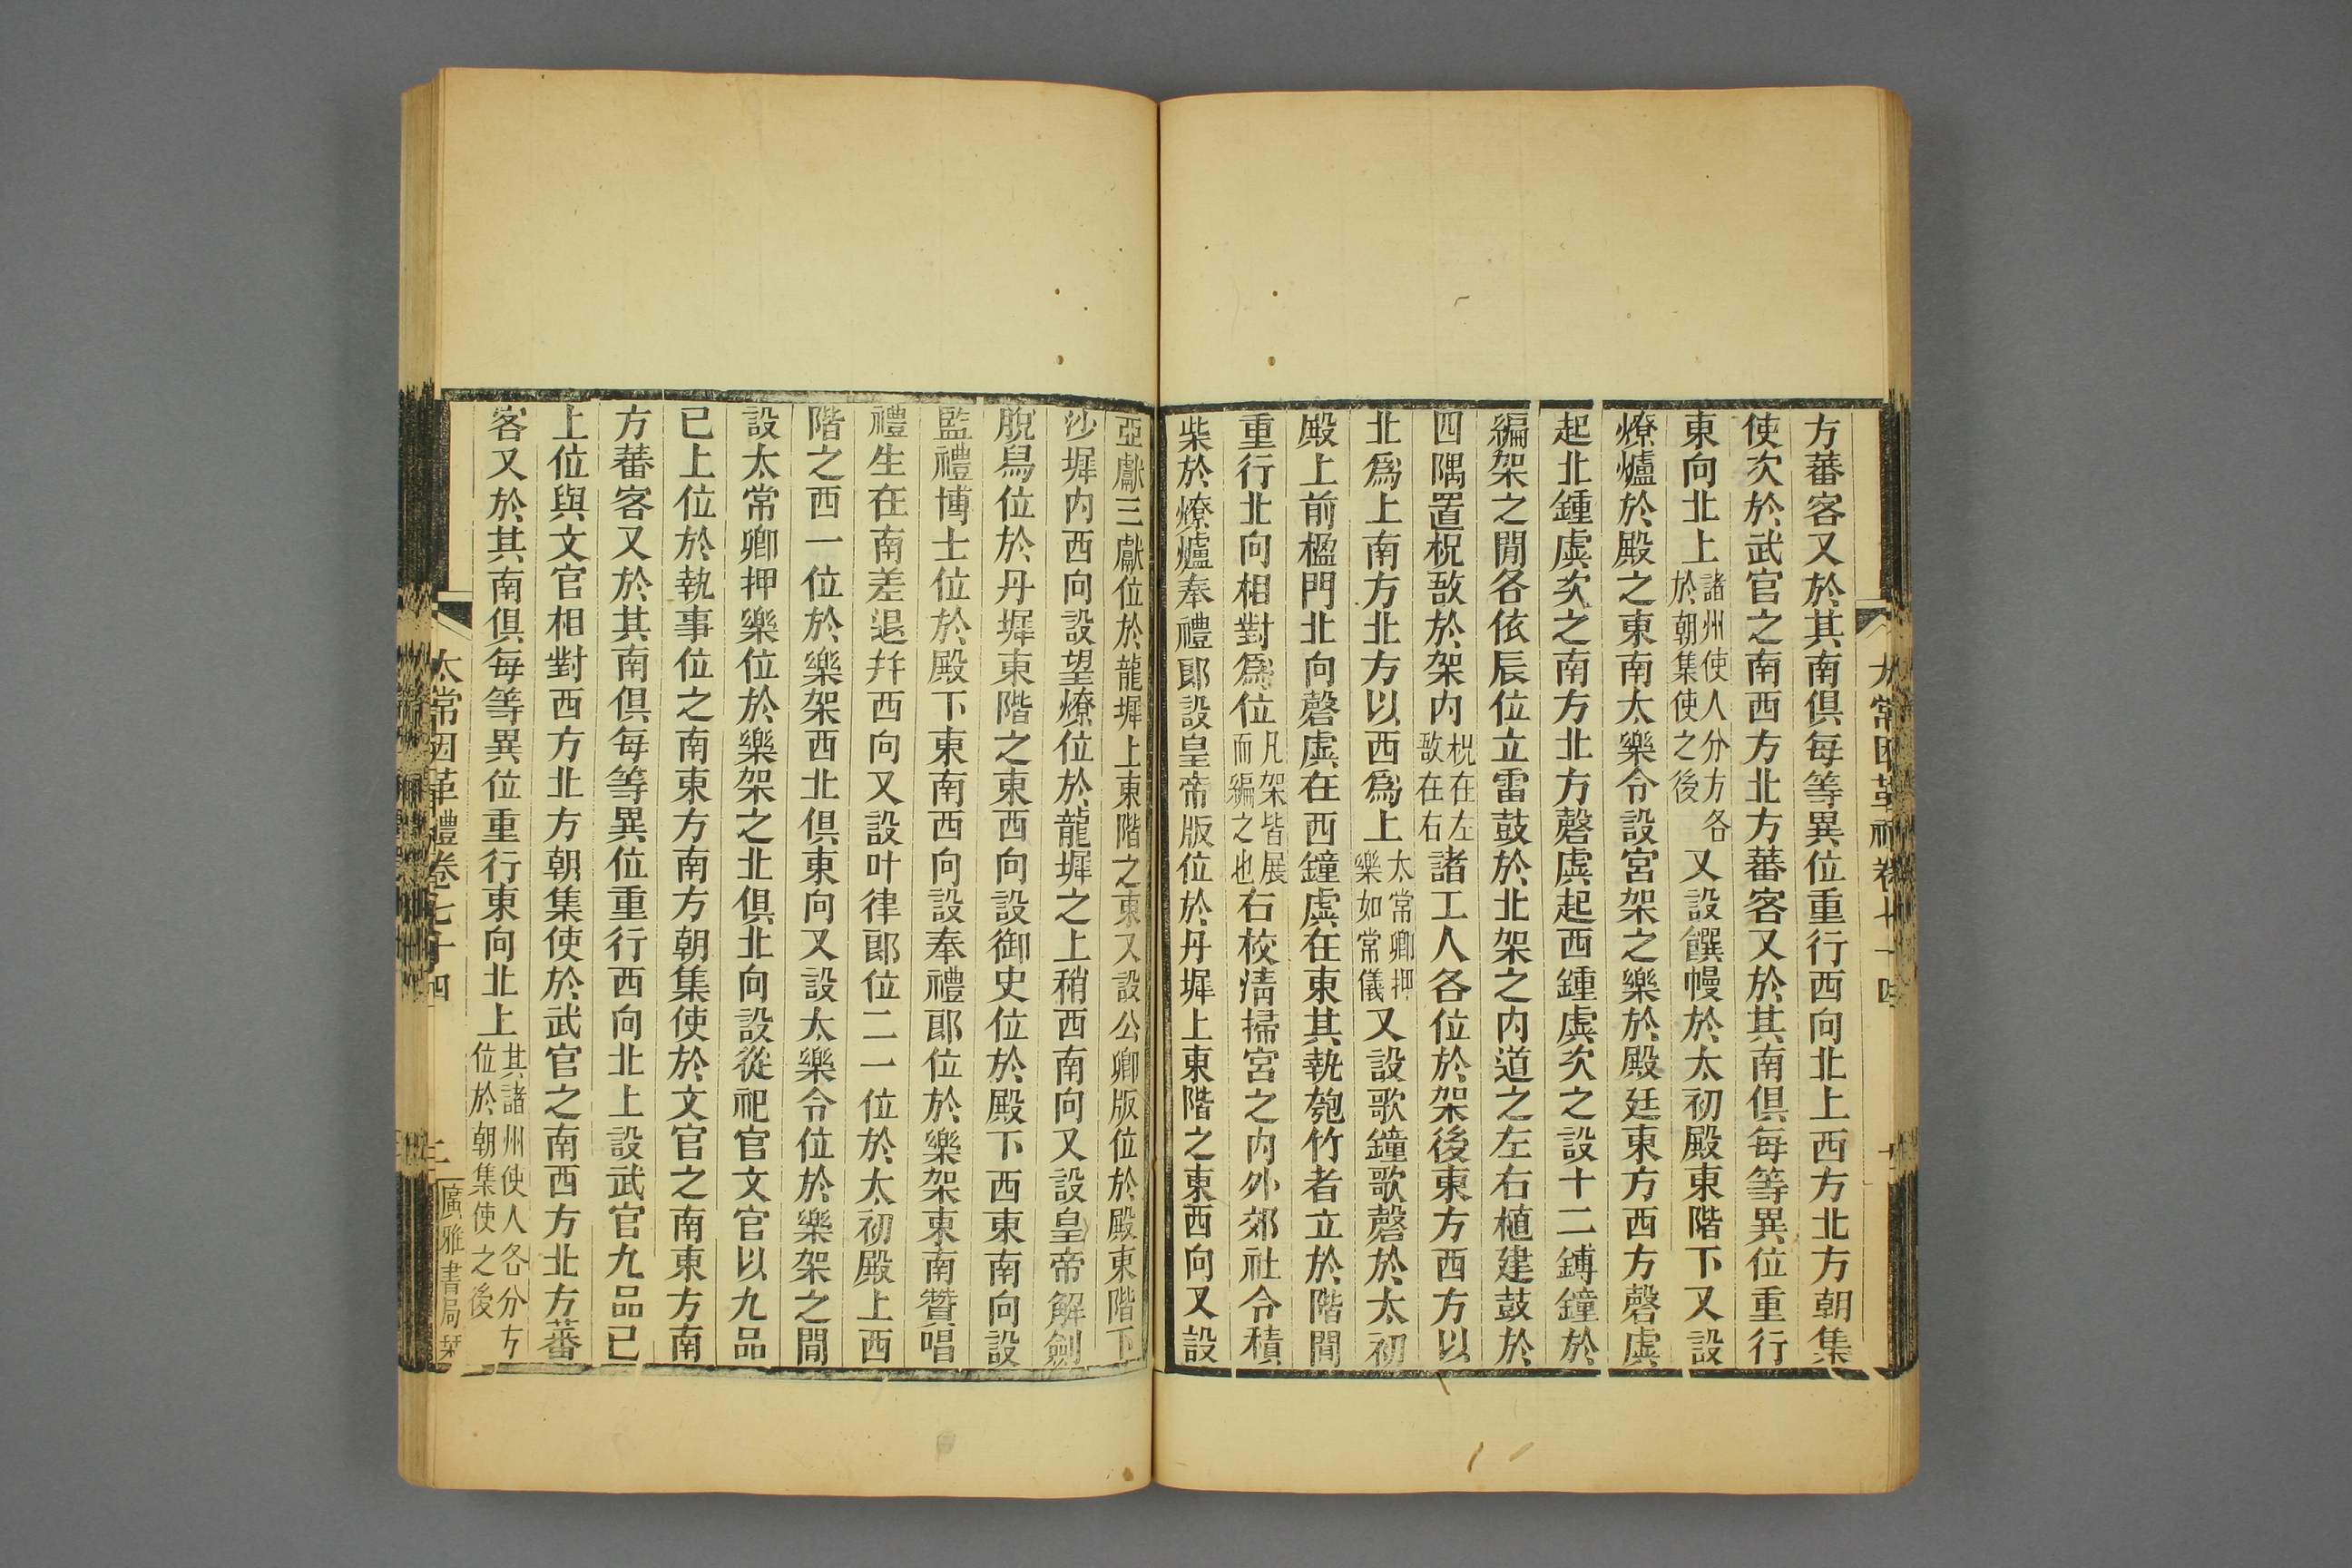 太常因革禮卷七十四
方蕃客又於其南俱每等異位重行西向北上西方北方朝集
使次於武官之南西方北方蕃客又於其南俱每等異位重行
東向北上諸州使人分方各於朝集使之後又設饌幔於太初殿東階下又設
燎爐於殿之東南太樂令設宮架之樂於殿廷東方西方磬虡
起北鍾虡次之南方北方磬虡起西鍾虡次之設十二鎛鐘於
編架之閒各依辰位立雷鼓於北架之內道之左右植建鼓於
四隅置柷敔於架內柷在左敔在右諸工人各位於架後東方西方以
北爲上南方北方以西爲上太常卿押樂如常儀又設歌鐘歌磬於太初
殿上前楹門北向磬虡在西鐘虡在東其執匏竹者立於階閒
重行北向相對爲位凡架皆展而編之也右校清掃宮之內外郊社令積
柴於燎爐奉禮郎設皇帝版位於丹墀上東階之東西向又設
亞獻三獻位於龍墀上東階之東又設公卿版位於殿東階下
沙墀內西向設望燎位於龍墀之上稍西南向又設皇帝解劍
脫舄位於丹墀東階之東西向設御史位於殿下西東南向設
監禮博士位於殿下東南西向設奉禮郎位於樂架東南贊唱
禮生在南差退幷西向又設叶律郎位二一位於太初殿上西
階之西一位於樂架西北俱東向又設太樂令位於樂架之閒
設太常卿押樂位於樂架之北俱北向設從祀官文官以九品
已上位於執事位之南東方南方朝集使於文官之南東方南
方蕃客又於其南俱每等異位重行西向北上設武官九品已
上位與文官相對西方北方朝集使於武官之南西方北方蕃
客又於其南俱每等異位重行東向北上其諸州使人各分方位於朝集使之後
太常因革禮卷七十四
二
廣雅書局栞